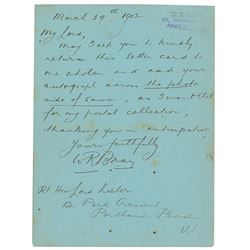 March 29th 1902
My Lord,
May I ask you to kindly
return this letter card to
me whole and add your
autograph across the photo
side of same, as I want that
for my postal collection,
thanking you in anticipation
Yours faithfully
W R Bray
Rt Hon Lord Lister
12 Park Crescent
Portland Place
W